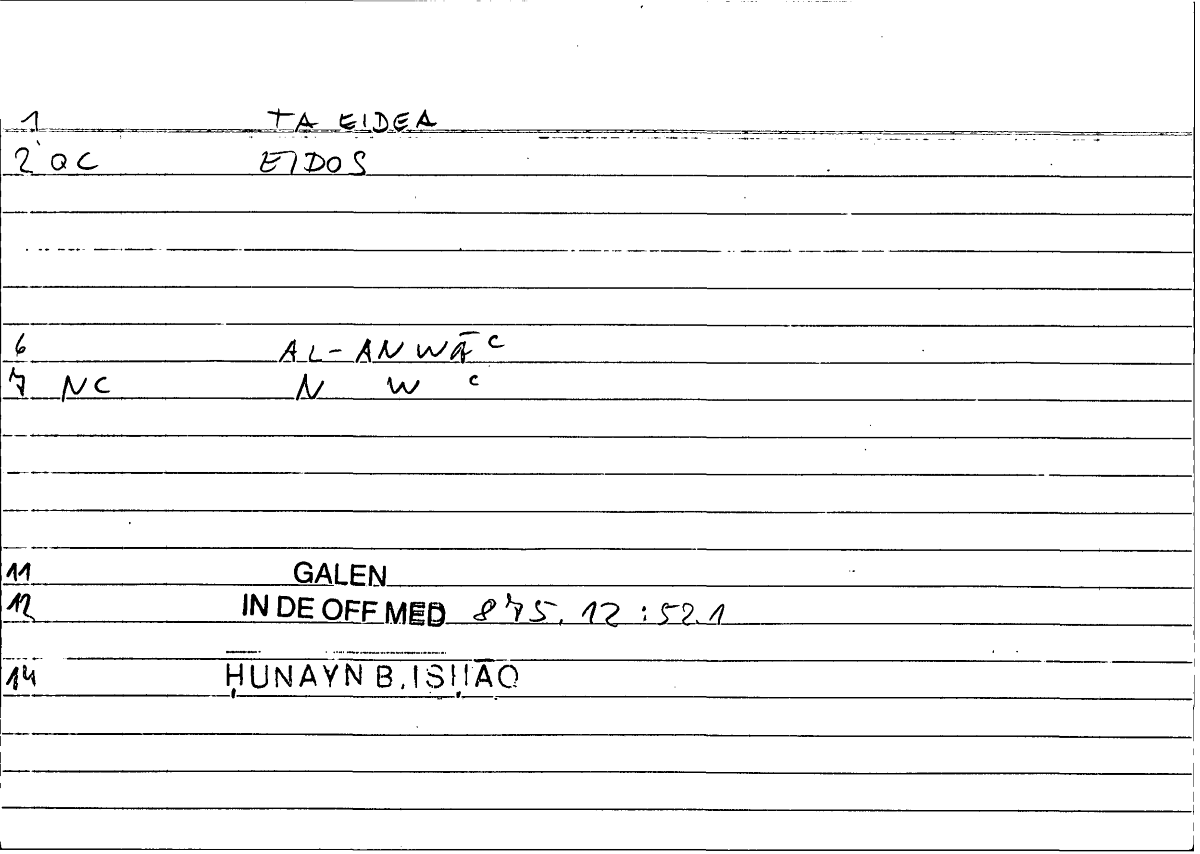 1 TA EIDEA
2 QC EIDOS
6 AL-ANWĀC
7 NC N W C
11 GALEN
12 IN DE OFF MED 875.12:52.1
14 ḤUNAYN B. ISḤĀQ